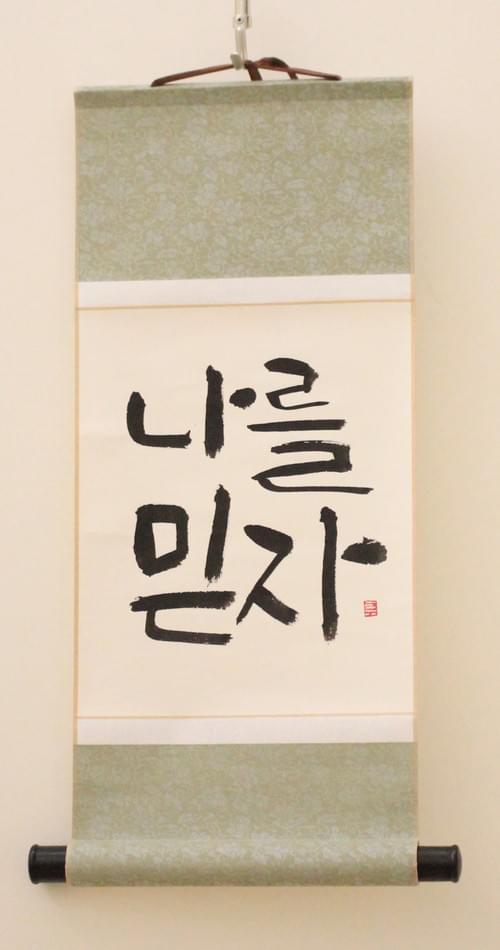 나를
믿자